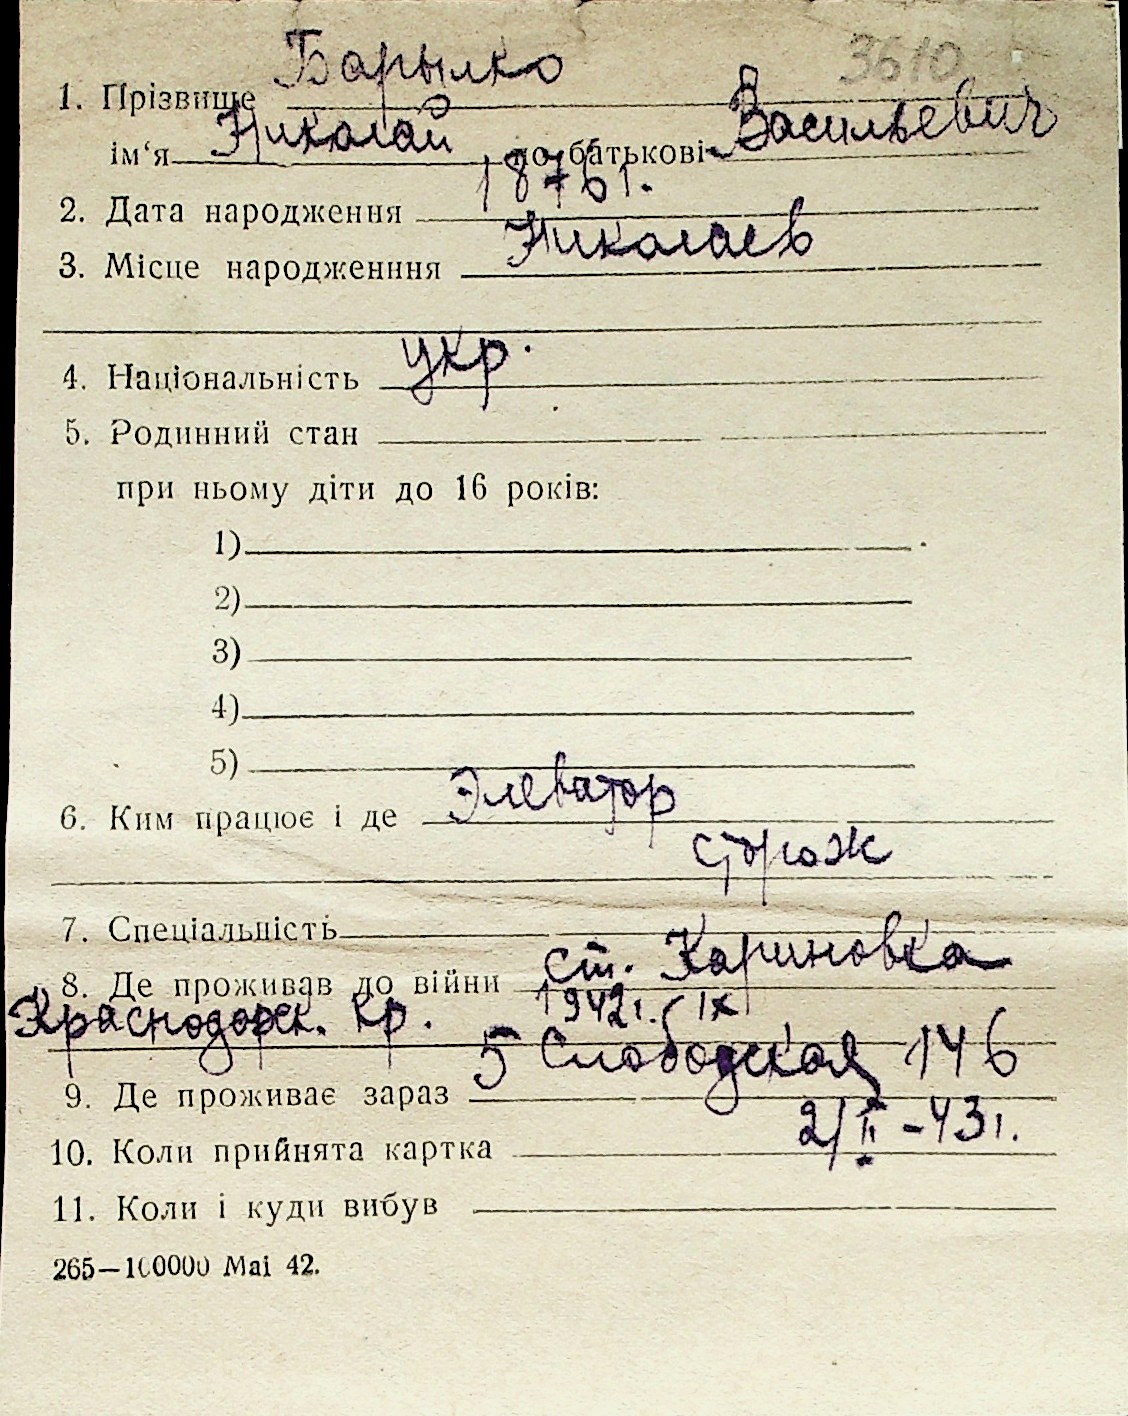 3610
1. Прізвище Барылко
ім‘я Николай по батькові Васильевич
2. Дата народження 1876 г.
3. Місце народженння Николаев
4. Національність укр.
5. Родинний стан
при ньому діти до 16 років:
1)
2)
3)
4)
5)
6. Ким працює і де Элеватор
сторож
7. Спеціальність
8. Де проживав до війни ст. Кариновка
Краснодарск. кр. 1942 г. IX
9. Де проживає зараз 5 Слободская 146
10. Коли прийнята картка 2/II-43 г.
11. Коли і куди вибув
265—100000 Маі 42.